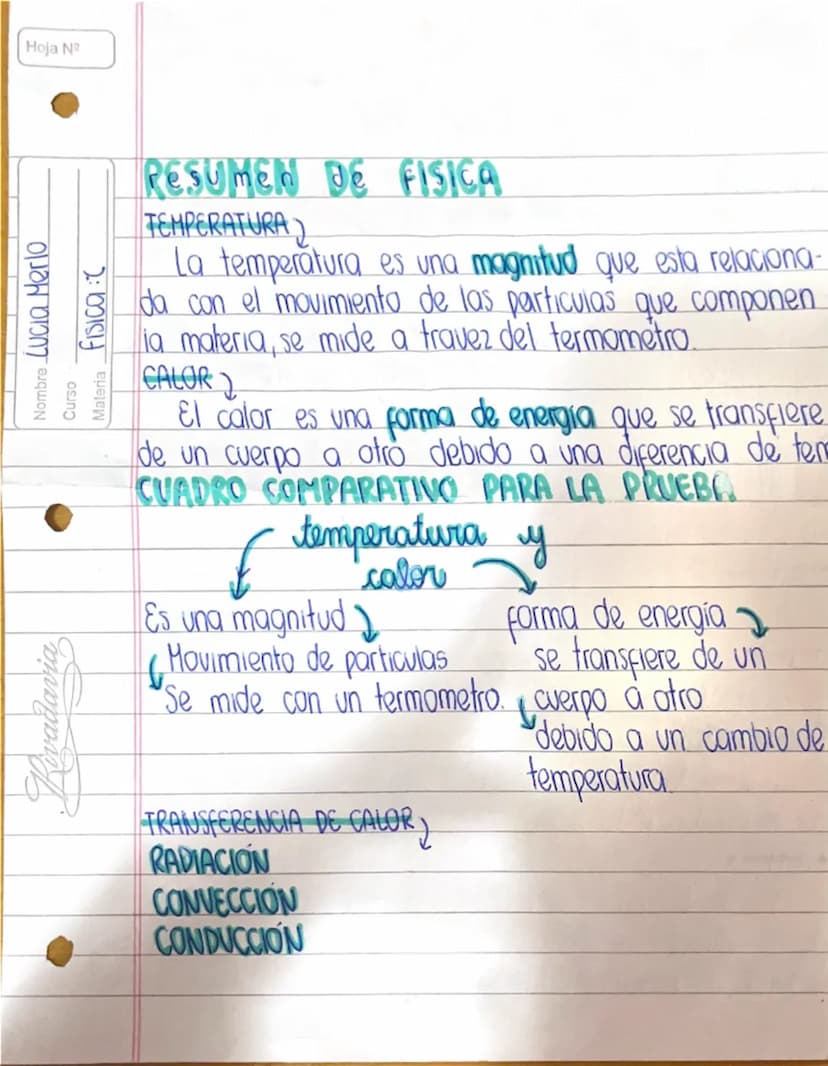 Hoja Nº
Nombre Lucia Merlo
Curso
Materia fisica :(
RESUMEN DE FISICA
TEMPERATURA
La temperatura es una magnitud que esta relaciona-
da con el movimiento de las particulas que componen
la materia, se mide a travez del termometro.
CALOR
El calor es una forma de energia que se transfiere
de un cuerpo a otro debido a una diferencia de tem
CUADRO COMPARATIVO PARA LA PRUEBA
temperatura y
calor
Es una magnitud
Movimiento de particulas
Se mide con un termometro.
forma de energía
se transfiere de un
cuerpo a otro
debido a un cambio de
temperatura
TRANSFERENCIA DE CALOR
RADIACIÓN
CONVECCIÓN
CONDUCCIÓN
Rivadavia